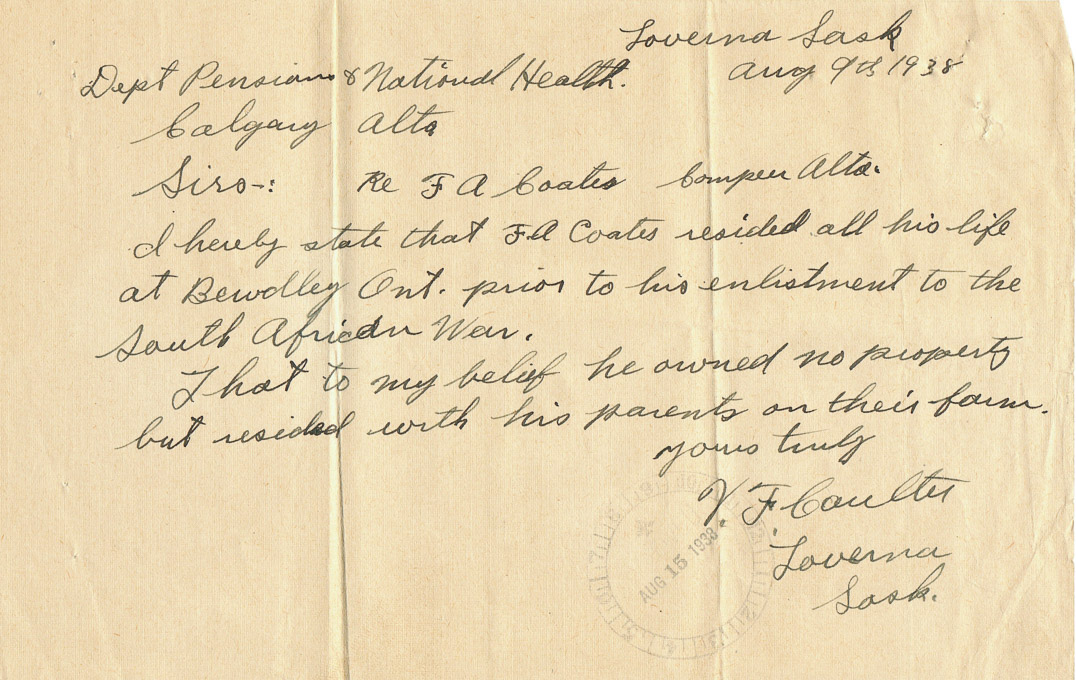 Loverna Sask
Aug 9th 1938
Dept Pensions & National Health.
Calgary Alta
Sirs-: Re F A Coates Compeer Alta.
I hereby state that F.A Coates resided all his life
at Bewdley Ont. prior to his enlistment to the
South African War.
That to my belief he owned no property
but resided with his parents on their farm.
yours truly
V. F. Coulter
Loverna
Sask.
AUG 15 1938